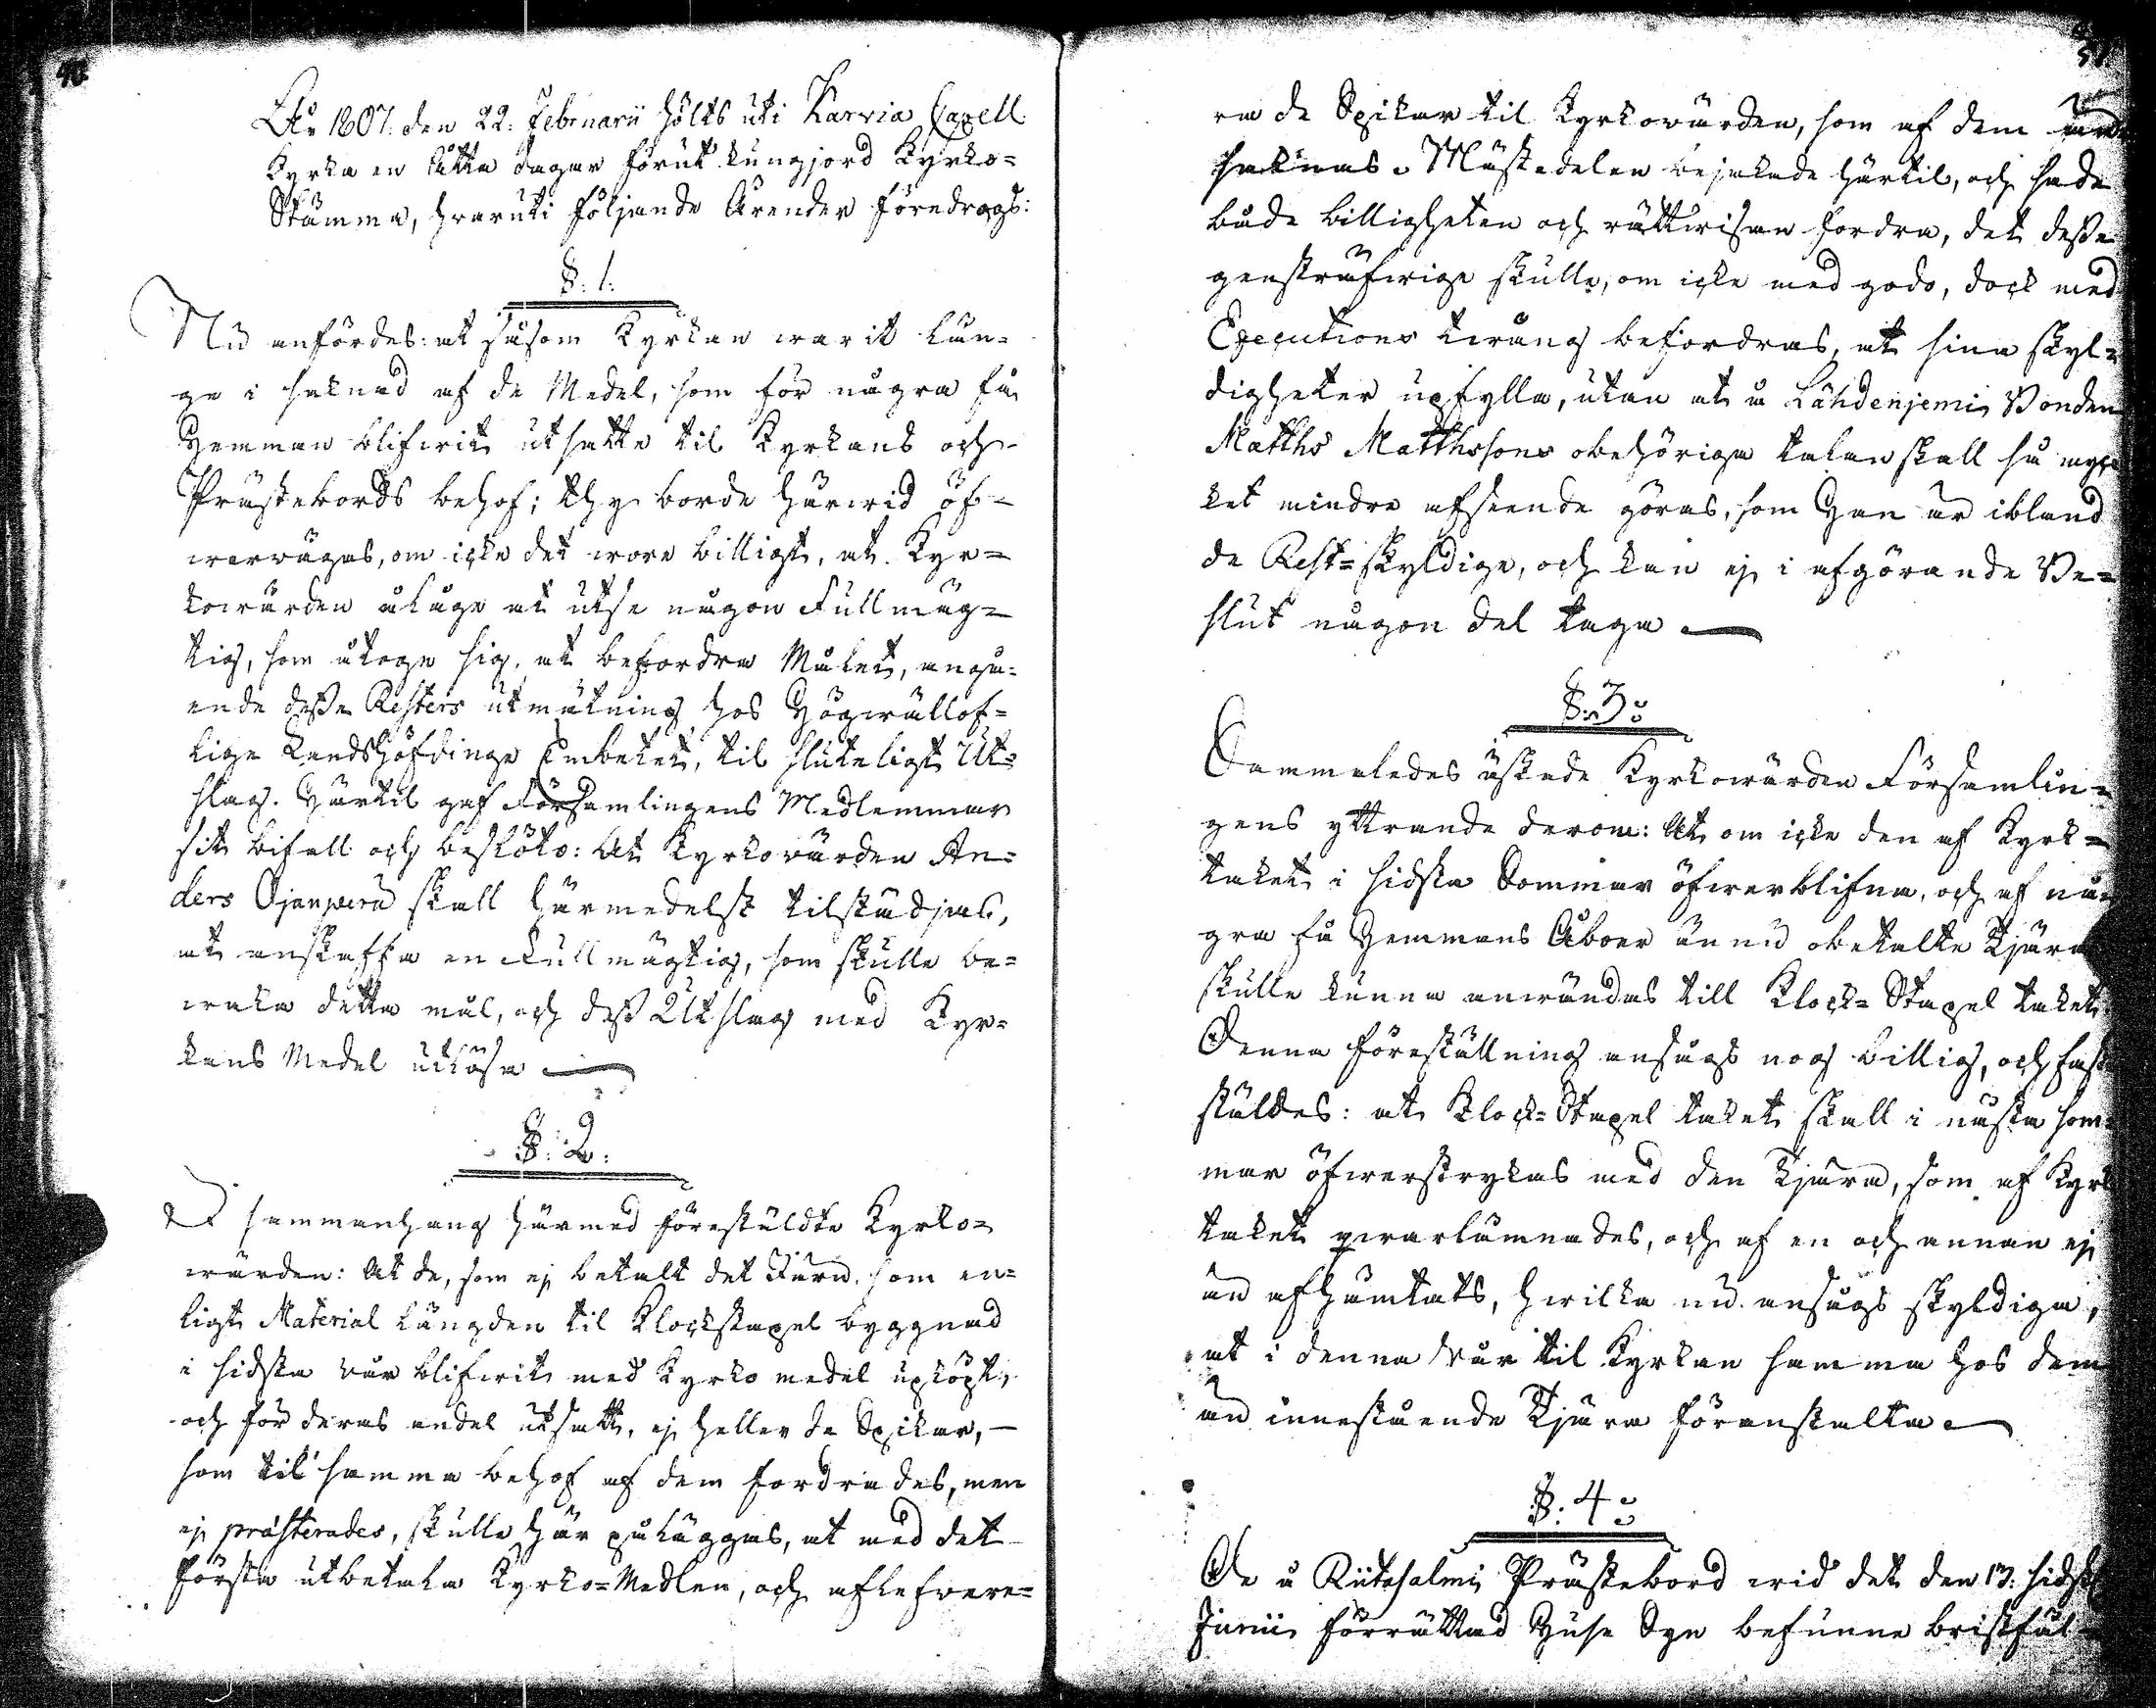 90.
År 1807. den 22. Februarii hölts uti Karvia Capell
Kyrka en åtta dagar förut kungjord Kyrko-
Stämma, hvaruti följande Ärender föredrogs:
§. 1.
Nu anfördes: at såsom Kyrkan warit län-
ge i saknad af de Medel, som för några få
Hemman blifwit utsatte til Kyrkans och
Prästebords behof; thy borde härwid öf-
werwägas, om icke det wore billigt, at Kyr-
kowärden ålåge at utse någon Fullmäg-
tig, som åtoge sig, at befordra Målet, angå-
ende desse Resters utmätning hos Högwällof-
lige Landshöfdinge Embetet, til sluteligt Ut-
slag. Härtil gaf Församlingens Medlemmar
sit bifall och beslöts: At Kyrkowärden An-
ders Ojanperä skall härmedelst tilstädjas,
at anskaffa en Fullmägtig, som skulle be-
waka detta mål, och dess Utslag med Kyr-
kans Medel utlösa
§. 2.
I sammanhang härmed förestäldte Kyrko-
wärden: At de, som ej betalt det Furu, som en-
ligt Material Längden til Klockstapel byggnad
i sidsta wår blifwit med Kyrko medel upköpt,
och för deras andel utsatt, ej heller de Spikar,
som til samma behof af dem fordrades, men
ej præsterades, skulle här påläggas, at med det
första utbetala Kyrko-Medlen, och aflefwere-
91.
ra de Spikar til Kyrkowärden, som af dem
saknas. Mästedelen bejakade härtil, och sade
både billigheten och rättwisan fordra, det desse
gensträfwige skulle, om icke med godo, dock med
Executions twång befordras, at sina skyl-
digheter upfylla, utan at å Lähdenjemi Bonden
Matths Matthssons obehöriga talan skall så myc-
ket mindre afseende göras, som Han är ibland
de Rest-skyldige, och kan ej i afgörande Be-
slut någon del taga
§. 3.
Sammaledes äskade Kyrkowärden Församlin-
gens yttrande derom: At om icke den af Kyrk-
taket i sidsta Sommar öfwerblifna, och af nå-
gra få Hemmans Åboer ännu obetalte Tjära
skulle kunna anwändas till Klock-Stapel taket.
Denna föreställning ansågs nog billig, och fast-
stäldes: at Klock-Stapel taket skall i nästa som-
mar öfwerstrykas med den Tjära, som af Kyrk
taket qwarlämnades, och af en och annan ej
än afhämtats, hwilka nu ansågs skyldiga,
at i denna wår til Kyrkan samma hos dem
än innestående Tjära föranstalta
§. 4.
De å Riitasalmi Prästebord wid det den 13. sidstl.
Junii förrättad Huse Syn befunne bristfäl-